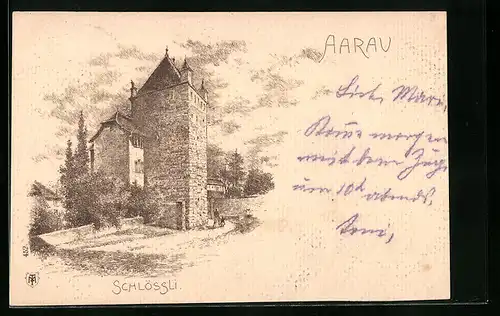 AARAU
Lieb. Mari,
Komme morgen
mit dem Zug
um 10h abends,
Toni,
SCHLÖSSLI.